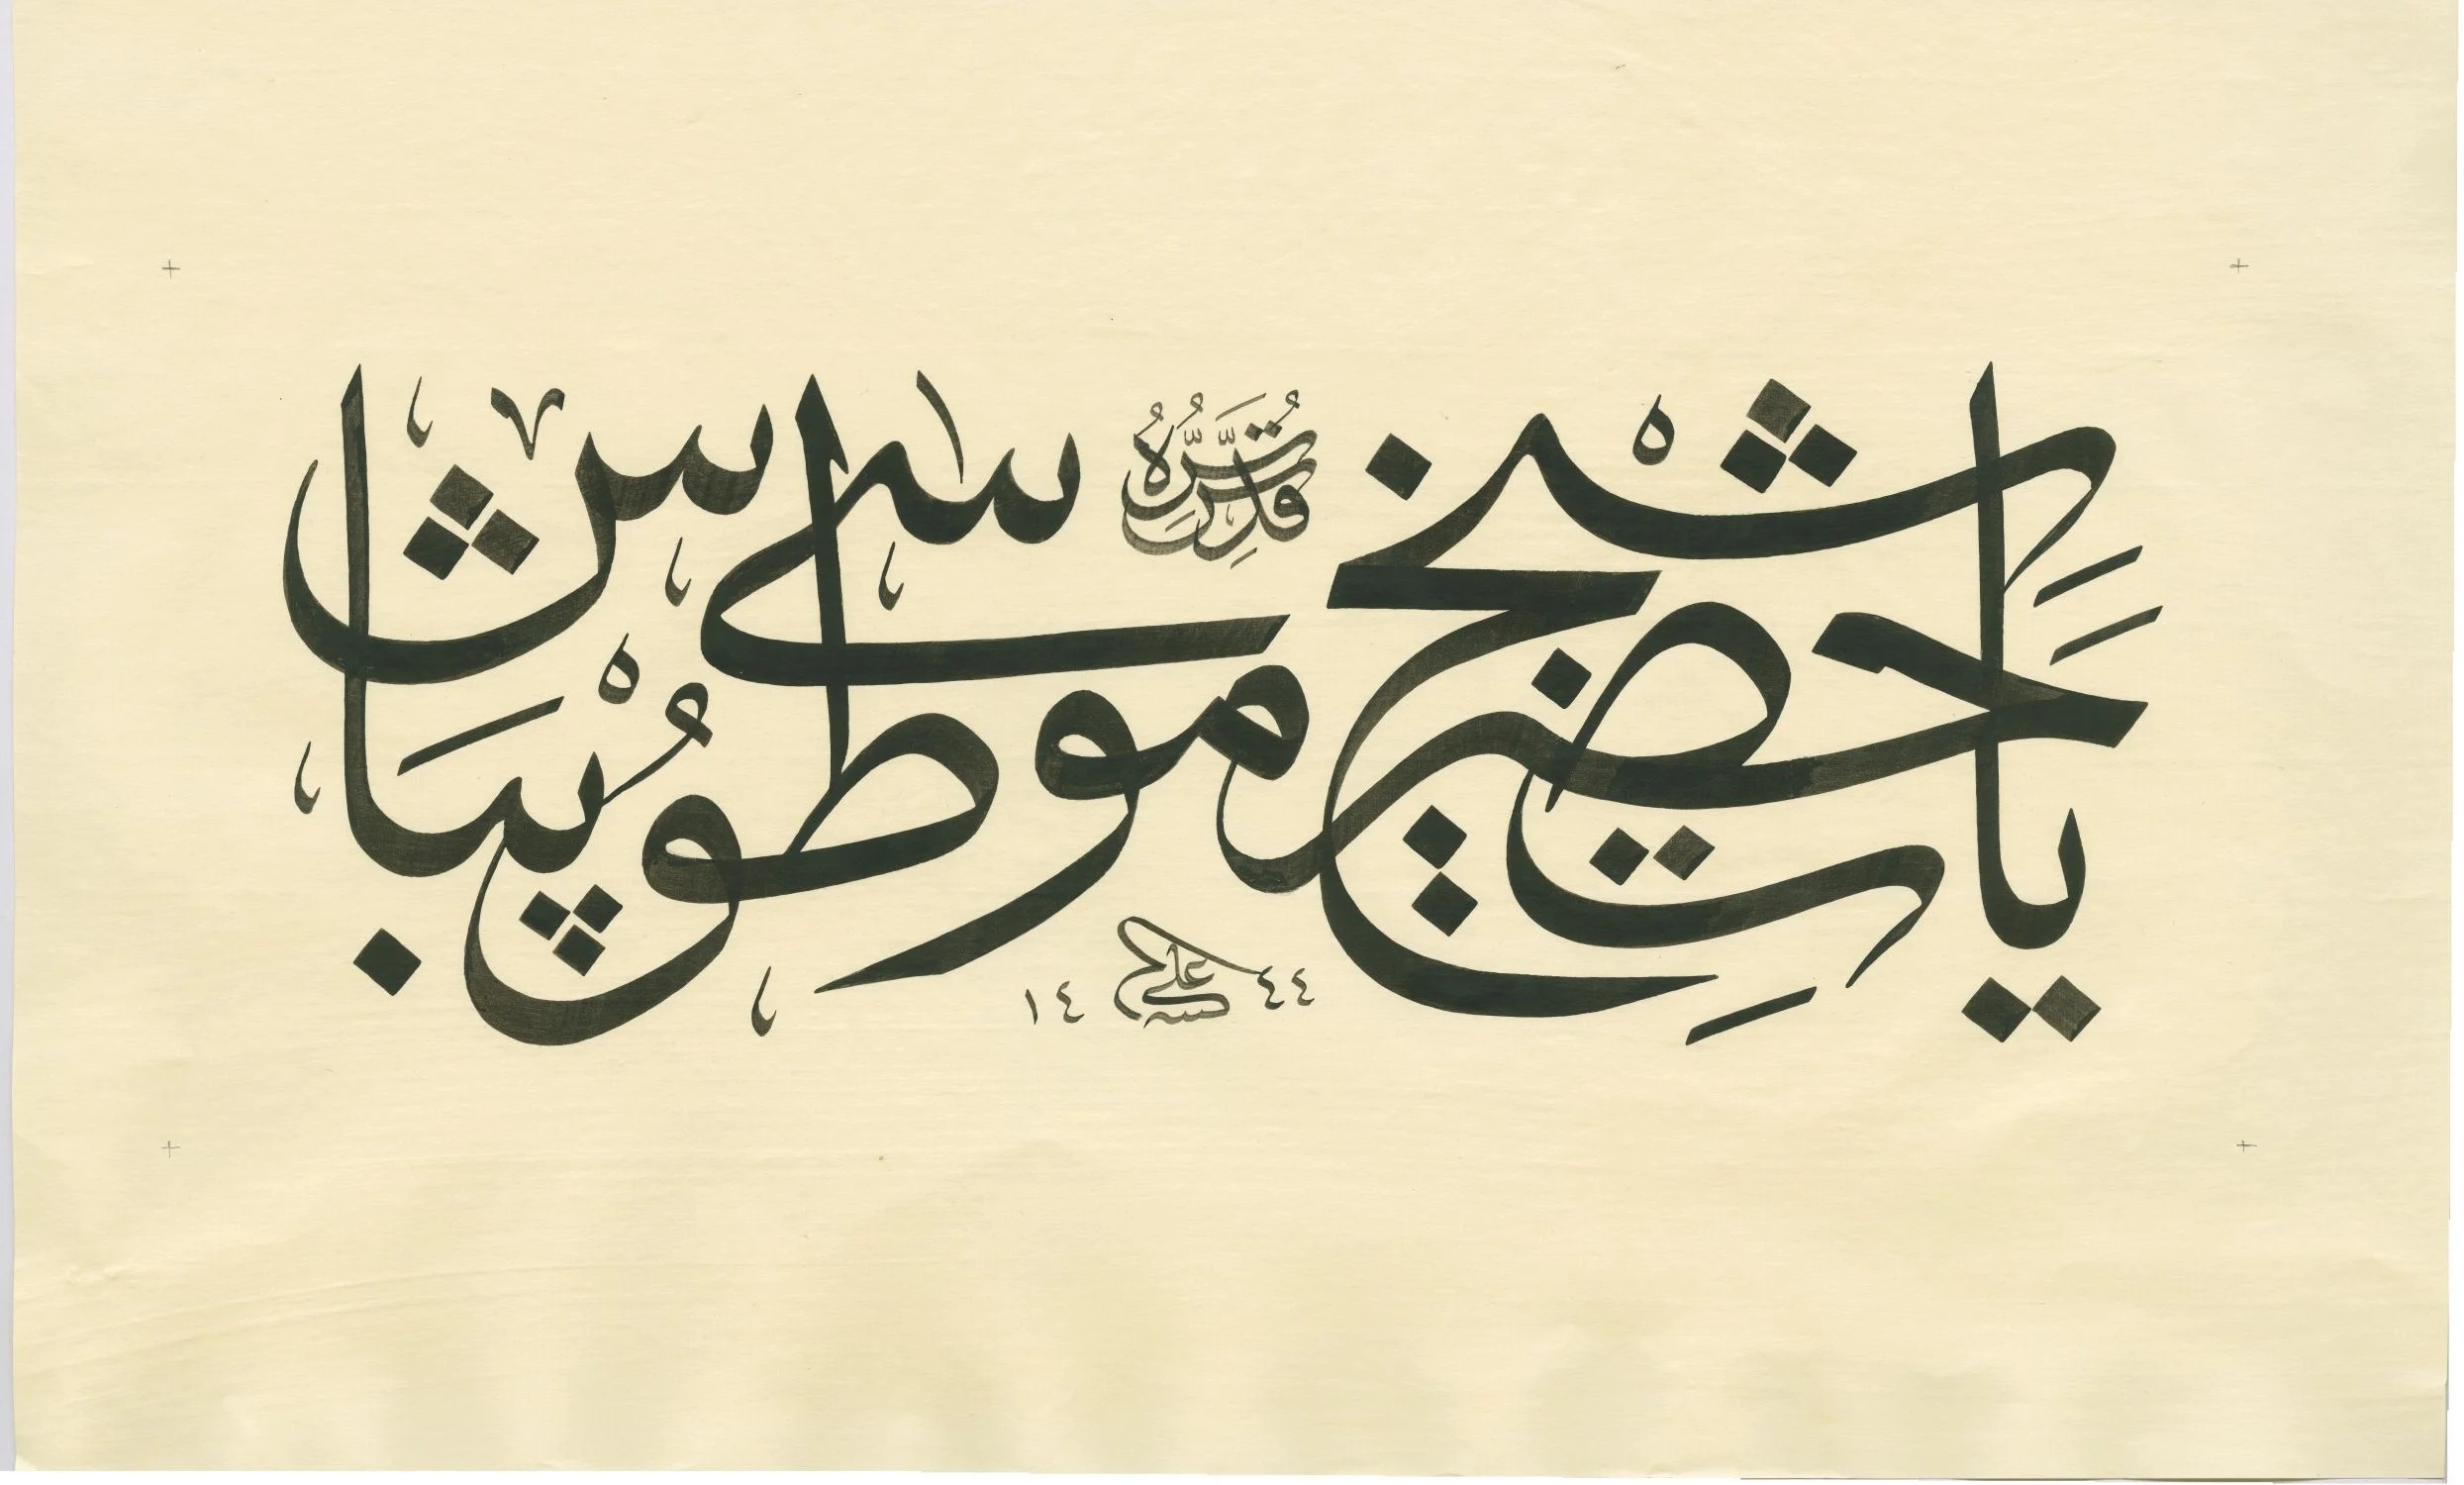 يا حضرت شيخ موسى طوپباش
قُدِّسَ سِرُّهُ
١٤٤٤